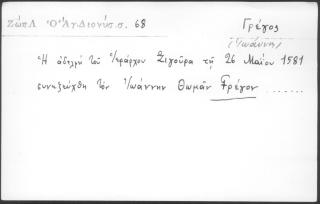 Ζώης Λ. Ὁ Ἁγ. Διονύσ. σ. 68
Γρέγος
(Ἰωάννης)
Ἡ ἀδελφή τοῦ Ἱεράρχου Σιγούρα τῇ 26 Μαΐου 1581
συνεζεύχθη τὸν Ἰωάννην Θωμᾶν Γρέγον .......